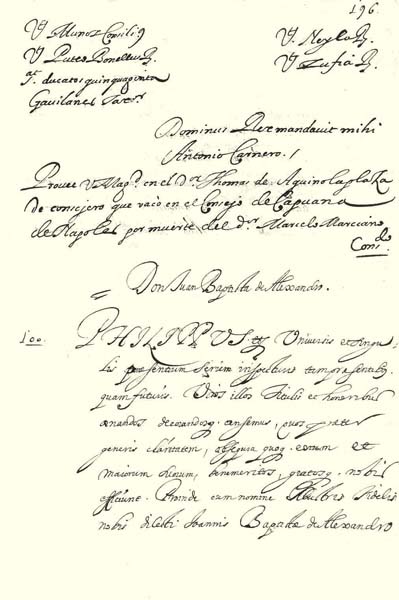 196
Vt Munoz Consili9
Vt Puteo Bonellus R.
at. ducatos quinquaginta
Gavilanes Taxr.
Vt. Neyla R.
Vt Zufia R.
Dominus Rex mandavit mihi
Antonio Carnero. /
Provee V Magd. en el Dr. Thomas de Aquino la plaza
De consejero que vacó en el Consejo de Capuana
de Napoles por muerte del dr. Marcelo Marciano
Consdo
Don Juan Baptista de Alexandro.
100.
PHILIPPUS. etc. Universis et singu-
lis presentium seriem inspecturis tam presentibq.
quam futuris. Viros illos titulis et honoribus
ornandos decorandosq. censemus, quos preter
generis claritatem, obsequia quoq. eorum et
maiorum suorum, benemeritos, gratosq. nobis
efficiunt. Proinde cum nomine Illustris fidelis
nobis dilecti Ioannis Baptiste de Alexandro